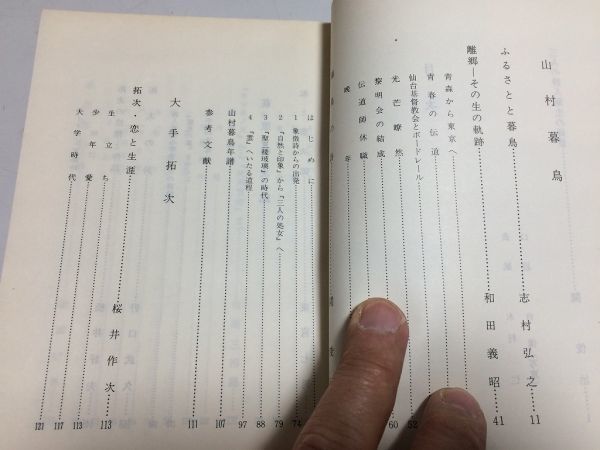 山村暮鳥
ふるさとと暮鳥 志村弘之 11
離郷―その生の軌跡 和田義昭 41
青森から東京へ
青春の伝道
仙台基督教会とボードレール 52
光芒瞭然 60
黎明会の結成
伝道師休職
晩年
はじめに
1 象徴詩からの出発 74
2 『自然と印象』から『三人の処女』へ 79
3 『聖三稜玻璃』の時代 88
4 『雲』へいたる道程 97
山村暮鳥年譜 107
参考文献 111
大手拓次
拓次・恋と生涯 桜井作次 113
生立ち 113
少年愛 117
大学時代 121